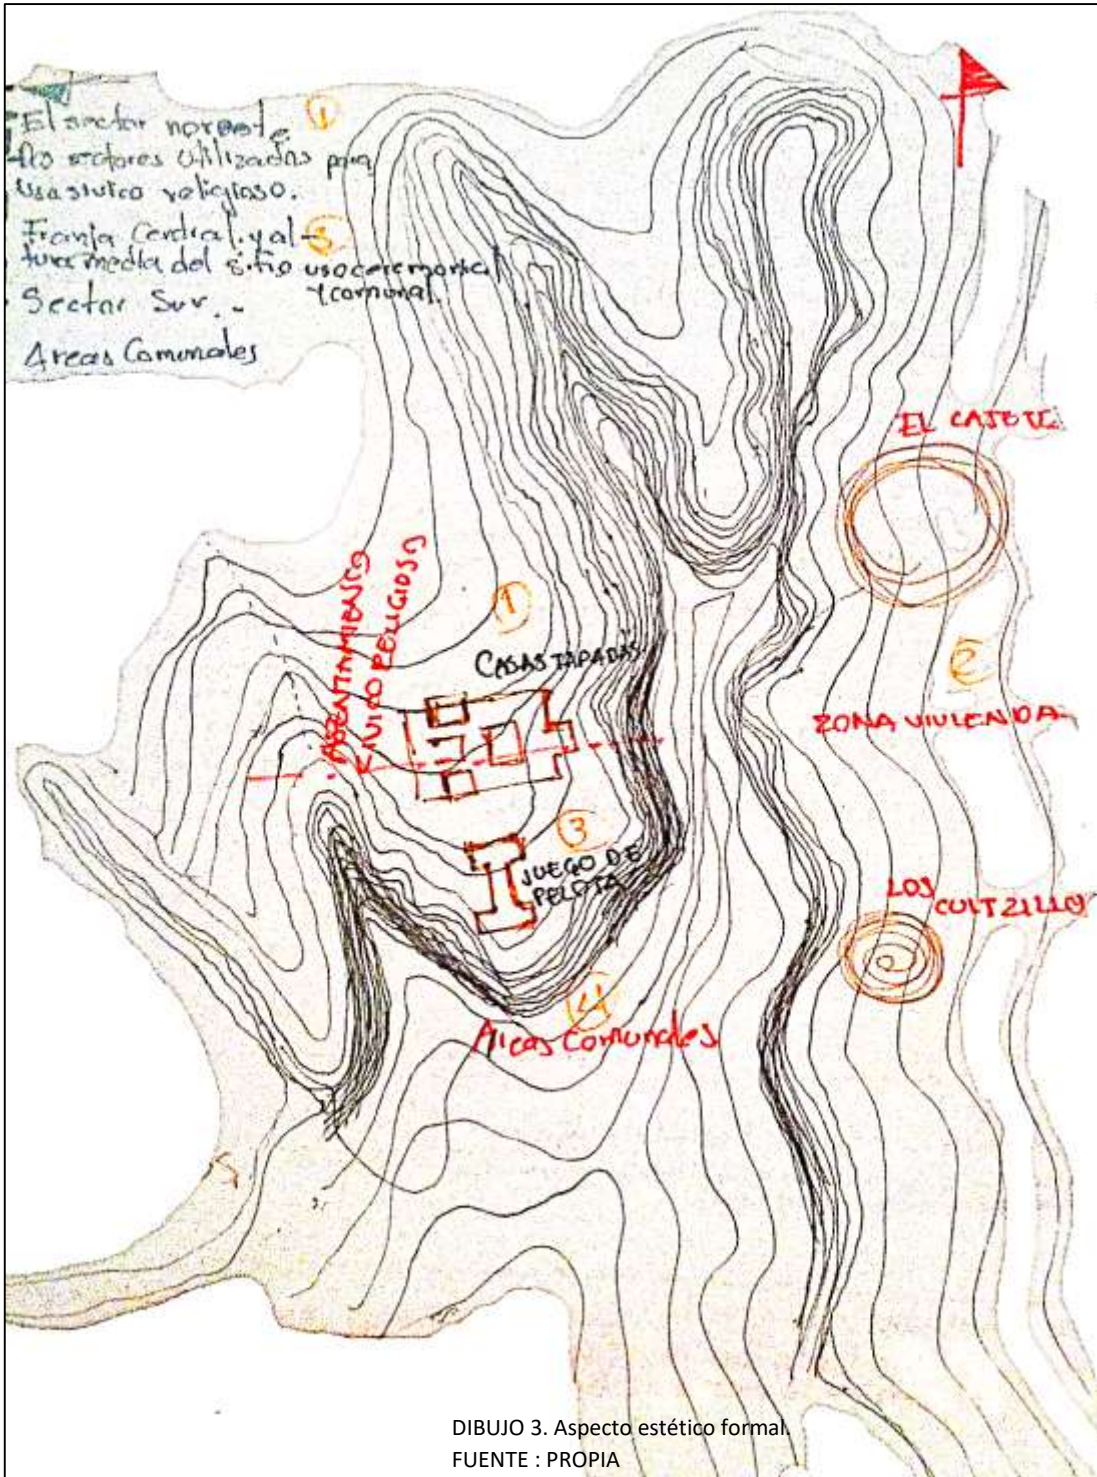 El sector noroeste 1
Dos sectores Utilizados para
Uso sivico religioso.
Franja Central y al- 3
tura media del sitio uso ceremonial
y comunal.
Sector Sur. -
Areas Comunales
EL CAJETE
1
ASENTAMIENTO
CIVICO RELIGIOSO
CASAS TAPADAS
2
ZONA VIVIENDA
3
JUEGO DE
PELOTA
LOS
CUITZILLO
4
Areas Comunales
DIBUJO 3. Aspecto estético formal.
FUENTE : PROPIA